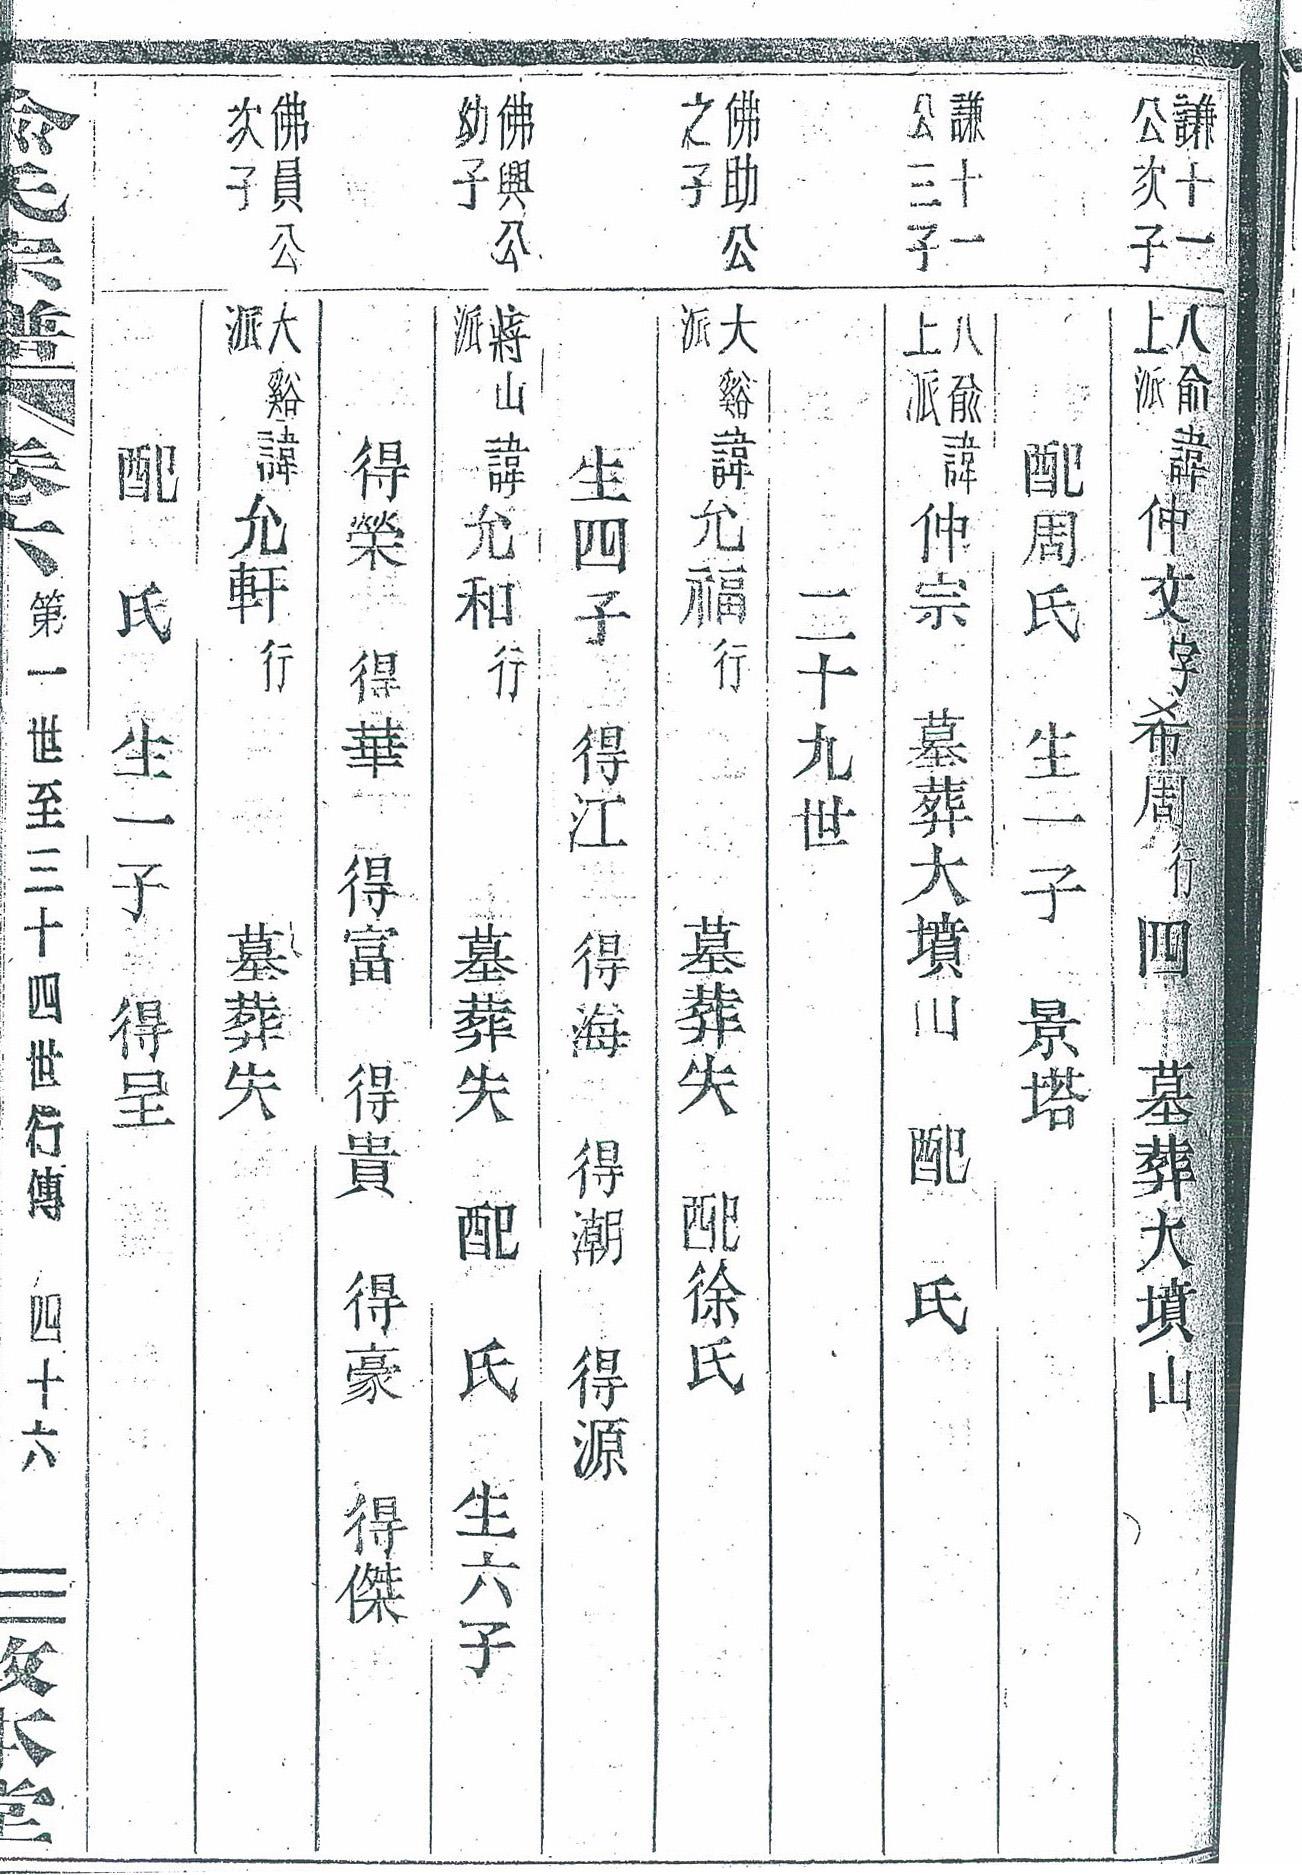 謙十一
公次子
八俞
上派
諱仲文字希周行四 墓葬大墳山
配周氏 生一子 景塔
謙十一
公三子
八俞
上派
諱仲宗 墓葬大墳山 配 氏
二十九世
佛助公
之子
大谿
派
諱允福行 墓葬失 配徐氏
生四子 得江 得海 得潮 得源
佛興公
幼子
蔣山
派
諱允和行 墓葬失 配 氏 生六子
得榮 得華 得富 得貴 得豪 得傑
佛員公
次子
大谿
派
諱允軒行 墓葬失
配 氏 生一子 得呈
俞氏宗譜 卷六 第一世至三十四世行傳 四十六 敦本堂